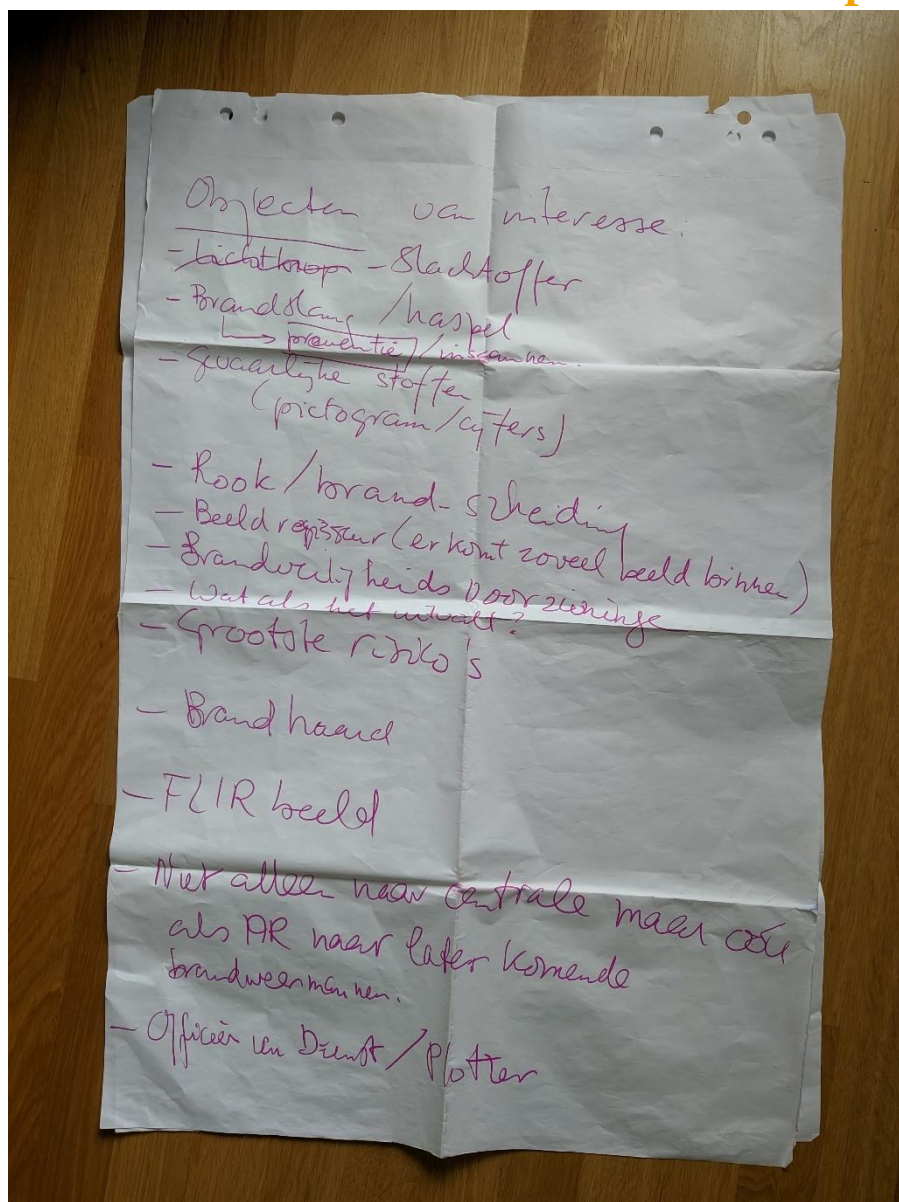 Objecten van interesse:
- Lichtknop - Slachtoffer
- Brandslang /haspel
↳ preventie/inscannen.
- Gevaarlijke stoffen
(pictogram/cijfers)
- Rook/brand-scheiding
- Beeldregisseur (er komt zoveel beeld binnen)
- Brandveiligheids voorzieninge
- Wat als het uitvalt?
- Grootste risiko's
- Brandhaard
- FLIR beeld
- Niet alleen naar centrale maar ook
als AR naar later komende
brandweermannen.
- Officier van Dienst / Plotter